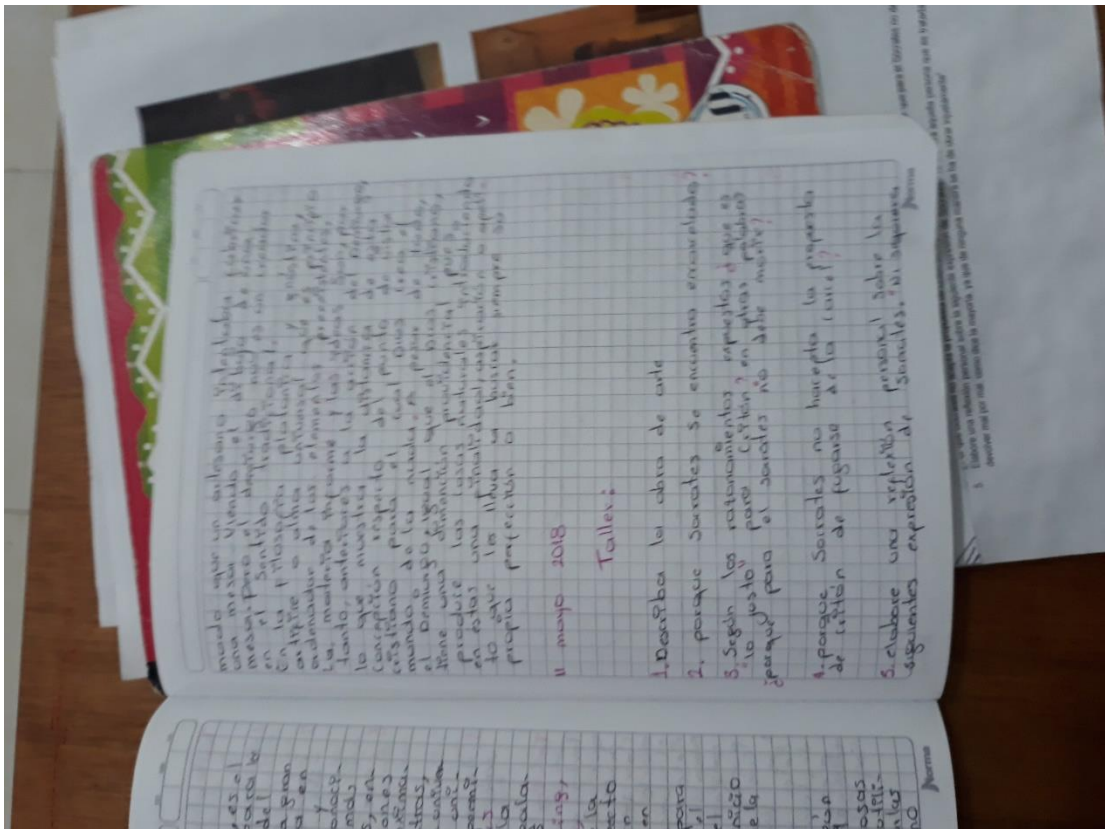 modo que un artesano intentaba fabricar
una mesa viendo el dibujo de una
mesa. Pero el demiurgo no es un creador
en el sentido tradicional.
En la filosofía platónica y gnostica,
artífice o alma universal que es principio
ordenador de los elementos preexistentes,
La materia informe y las ideas son, por
tanto, anteriores a la acción del Demiurgo,
lo que muestra la distancia de esta
concepción respecto del punto de vista
cristiano para el cual Dios crea el
mundo de la nada. A pesar de todo,
el Demiurgo, igual que el Dios cristiano,
tiene una dimensión providencial pues
produce las cosas naturales introduciendo
en estas una finalidad, aspiración o apeti-
to que los lleva a buscar siempre su
propia perfección o bien.
11 mayo 2018
Taller:
1. Describa la obra de arte
2. porque Socrates se encuentra encarcelado?
3. Según los razonamientos expuestos ¿que es
"lo justo" para Critón? en otras palabras
¿porque para el socrates no debe morir?
4. porque Socrates no hacepta la propuesta
de critón de fugarse de la carcel?
5. elabore una reflexión personal sobre la
siguientes expresión de Socrates. "Ni siquiera
Norma
5 Elabore una reflexión personal sobre la siguiente expresión de Socrates:
devolver mal por mal, como dice la mayoría, ya que de ninguna manera se ha de obrar injustamente"
, es el
para la
del
a gran
a en
y
conocy-
mas
s, en
ones
dras,
uni-
permi-
is
la
pala-
s
ing,
la
acto
n
en
para
el
el
ncio
e la
osas
utili-
no
Norma